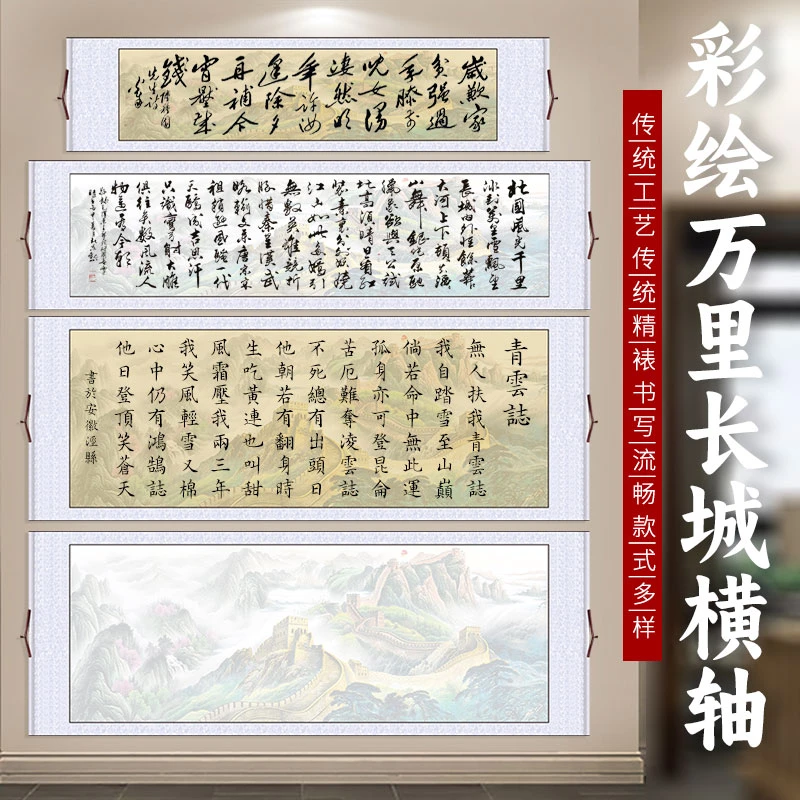 彩绘万里长城横轴
传统工艺 传统精裱 书写流畅 款式多样
歲歉家
貧強過
年膝前
兒女漫
凄然明
年許汝
逢除夕
再補今
宵壓歲
錢
北國風光千里
冰封萬里雪飄望
長城内外惟餘莽
大河上下頓失滔
山舞銀蛇原馳
蠟象欲與天公試
比高須晴日看紅
裝素裹分外妖嬈
江山如此多嬌引
無數英雄競折
腰惜秦皇漢武
略輸文采唐宗宋
祖稍遜風騷一代
天驕成吉思汗
只識彎弓射大雕
俱往矣數風流人
物還看今朝
青雲誌
無人扶我青雲誌
我自踏雪至山巔
倘若命中無此運
孤身亦可登昆侖
苦厄難奪淩雲誌
不死總有出頭日
他朝若有翻身時
生吃黃連也叫甜
風霜壓我兩三年
我笑風輕雪又棉
心中仍有鴻鵠誌
他日登頂笑蒼天
書於安徽涇縣